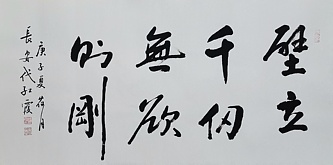 壁立
千仞
無欲
則剛
庚子夏荷月
長安代紅霞